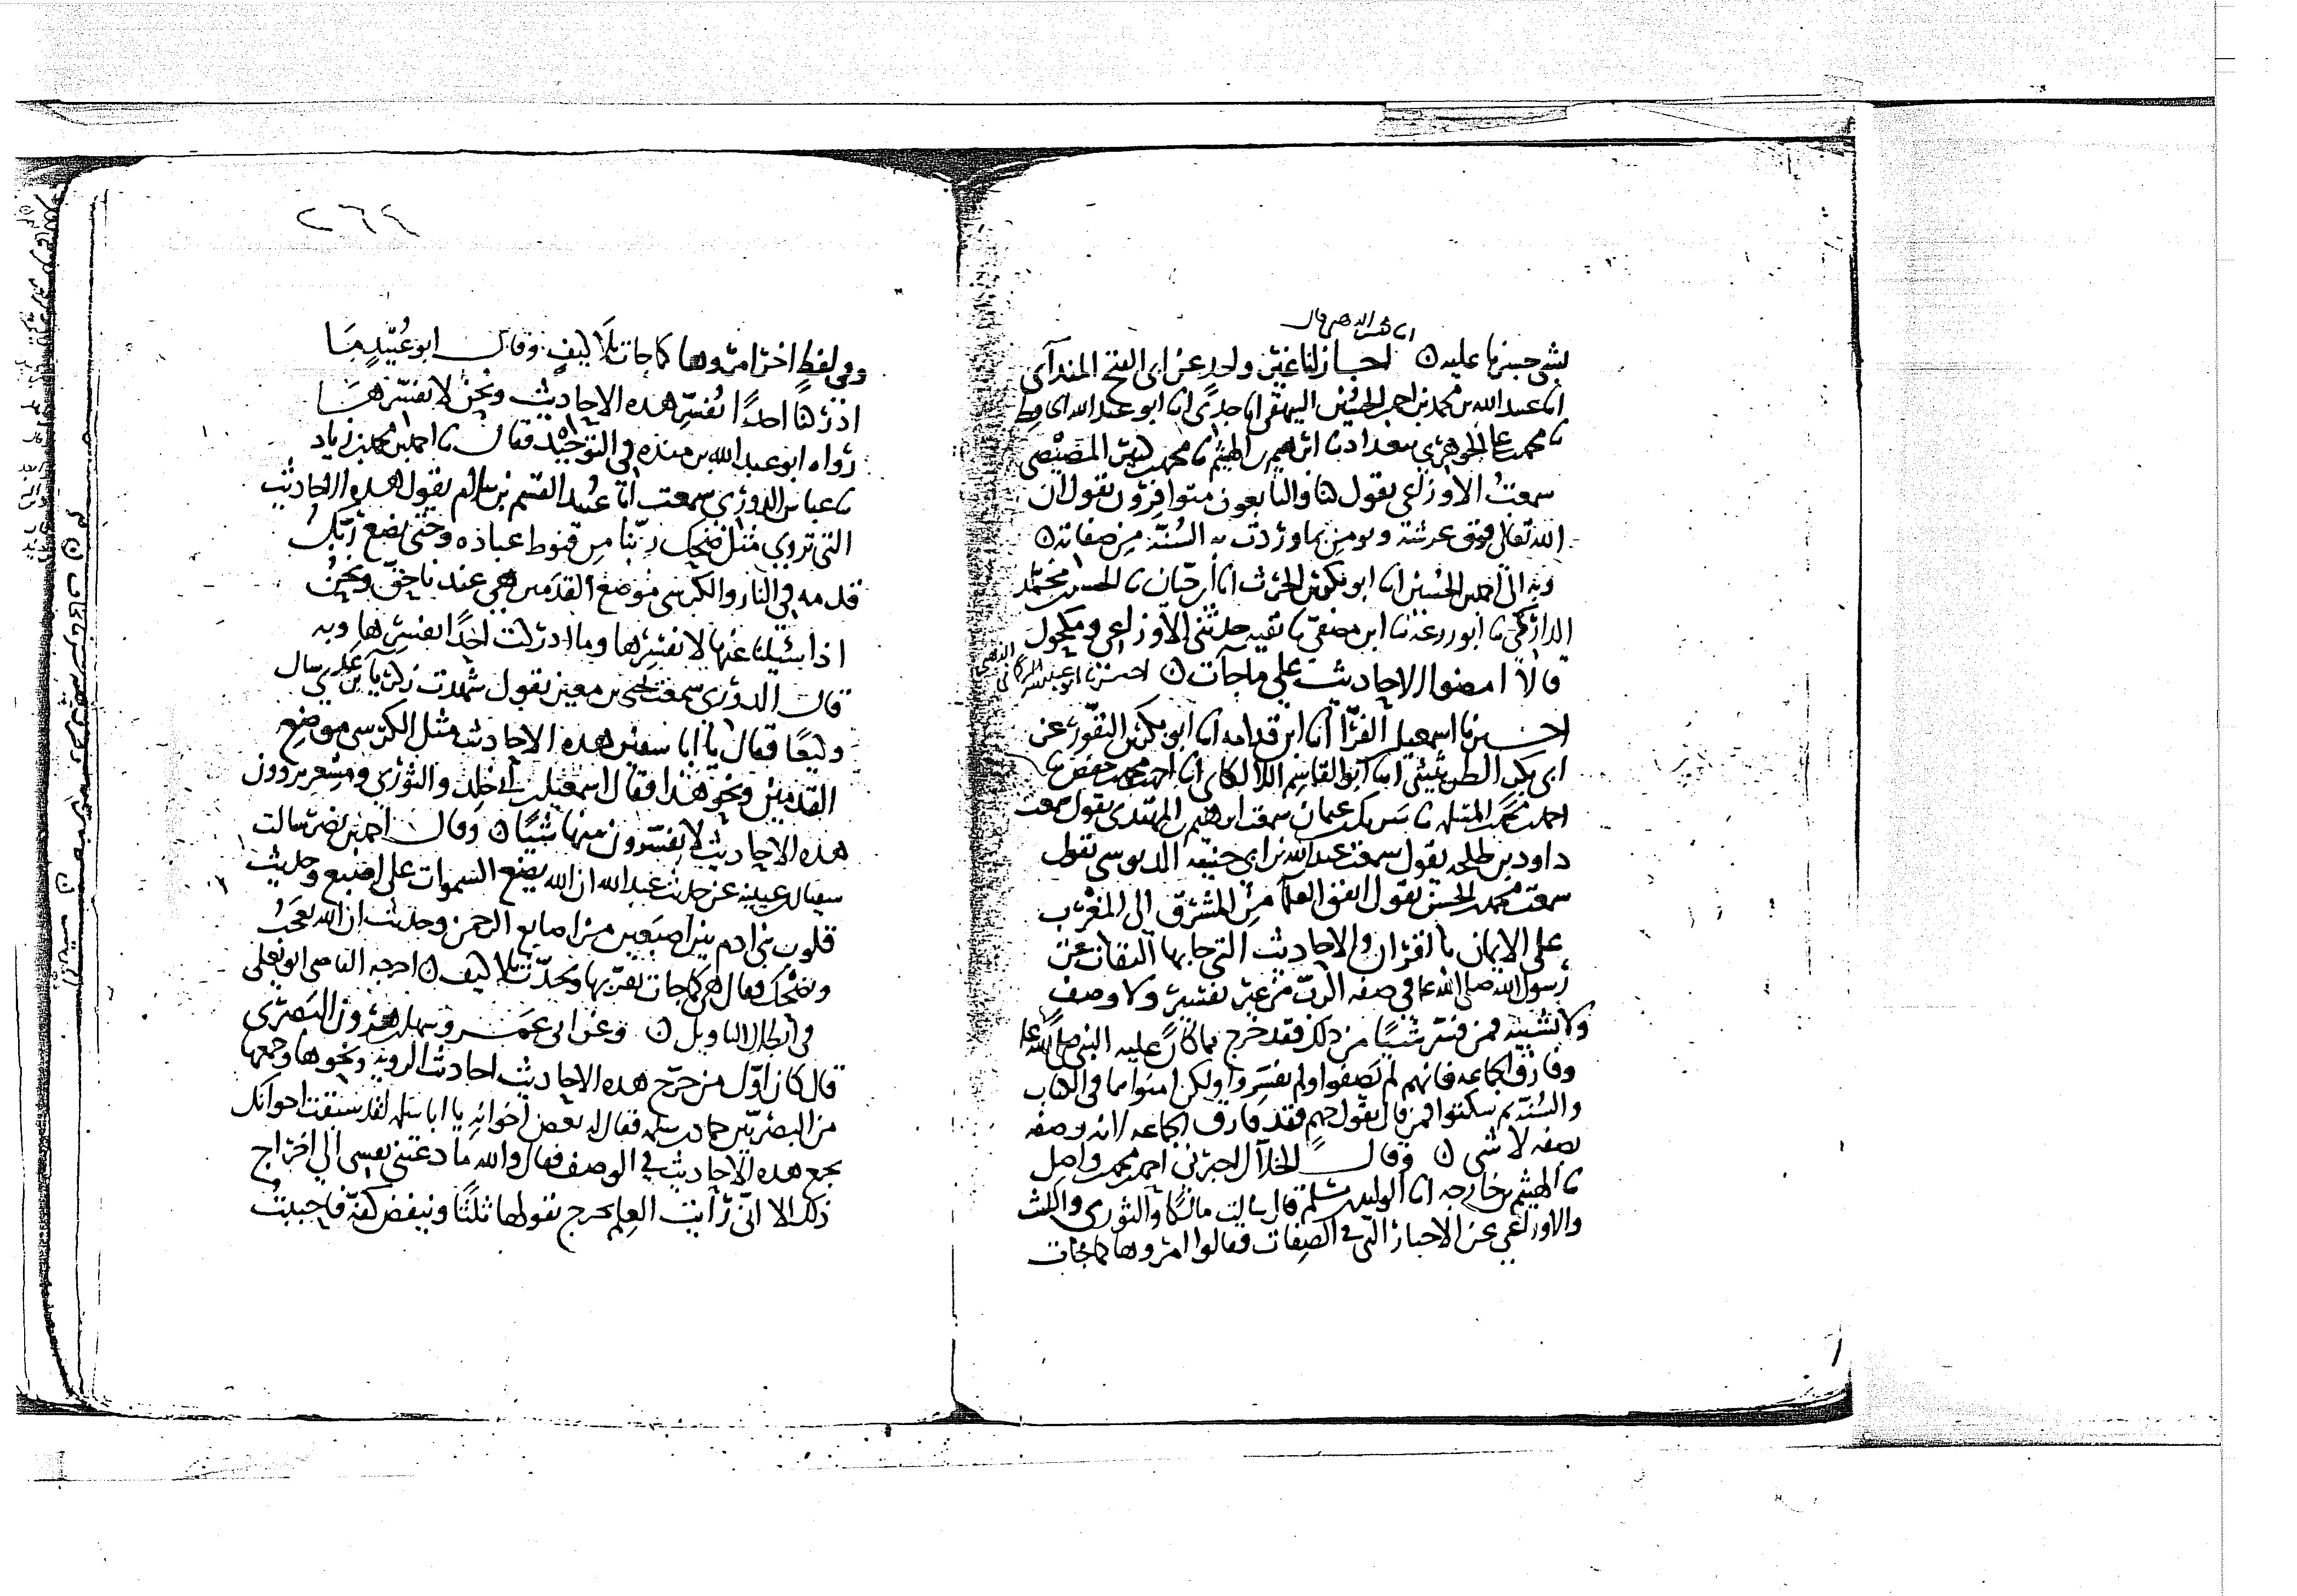 انا شمس الدهر قال
بشي جبرنا عليه ۞ اجازلنا غير واحد عن ابى الفتح المندآى
انا عبيد الله بن محمد بن احمد بن الحسين البيهقي انا جدي انا ابو عبد الله الحافظ
نا محمد بن علي الجوهري ببغداد نا ابرهيم بن الهيثم نا محمد بن كثير المصيصي
سمعت الاوزاعي يقول كنا والتابعون متوافرون نقول ان
الله تعالى فوق عرشه ونومن بما وردت به السنة من صفاته ۞
وبه الى احمد بن الحسين انا ابو بكر بن الحرث انا ابن حيان نا الحسن بن محمد
الداركي نا ابو زرعة نا ابن مصفى نا بقيه حدثني الاوزاعي ومكحول
قالا امضوا الاحاديث على ما جآت ۞
اخبرنا اسمعيل بن الفرّا انا ابن قدامه انا ابو بكر بن النقور عن
ابى بكر الطريثيثي انا ابو القاسم اللالكاي انا احمد بن محمد بن حفص نا
احمد بن محمد بن المسلمه نا سهل بن عثمان سمعت ابرهيم بن المهتدي يقول سمعت
داود بن طلحه يقول سمعت عبد الله بن ابى حنيفه الدبوسي يقول
سمعت محمد بن الحسن يقول اتفق العلما من المشرق الى المغرب
على الايمان بالقران والاحاديث التي جا بها الثقات عن
رسول الله صلى الله عليه في صفه الرب من غير تفسير ولا وصف
ولا تشبيه فمن فسر شيئا من ذلك فقد خرج مما كان عليه النبي صلى الله عليه
وفارق الجماعه فانهم لم يصفوا ولم يفسروا ولكن امنوا بما في الكتاب
والسنة ثم سكتوا فمن قال بقول جهم فقد فارق الجماعه لانه وصفه
بصفه لا شي ۞ وقال الخلال اخبرني احمد بن محمد بن واصل
نا الهيثم بن خارجه انا الوليد بن مسلم قال سالت مالكا والثوري والليث
والاوزاعي عن الاخبار التي في الصفات فقالوا امروها كما جآت
٢٦٤
وفي لفظ اخر امروها كما جات بلا كيف وقال ابو عبيد ما
ادركنا احدًا يفسر هذه الاحاديث ونحن لا نفسرها
رواه ابو عبد الله بن منده في التوحيد فقال نا احمد بن محمد بن زياد
نا عباس الدوري سمعت ابا عبيد القسم بن سلام يقول هذه الاحاديث
التي تروى مثل ضحك ربنا من قنوط عباده وحتى يضع ربك
قدمه في النار والكرسي موضع القدمين هي عندنا حق ونحن
اذا سئلنا عنها لا نفسرها وما ادركت احدًا يفسرها وبه
قال الدوري سمعت يحيى بن معين يقول شهدت زكريا بن عدي سال
وكيعا فقال يا ابا سفين هذه الاحاديث مثل الكرسي موضع
القدمين ونحو هذا فقال اسمعيل بن ابي خلد والثوري ومسعر يروون
هذه الاحاديث لا يفسرون منها شيئا ۞ وقال احمد بن نصر سالت
سفيان بن عيينه عن حديث عبد الله ان الله يضع السموات على اصبع وحديث
قلوب بني ادم بين اصبعين من اصابع الرحمن وحديث ان الله يعجب
ويضحك فقال هي كما جات نقر بها ونحدث بلا كيف ۞ اخرجه القاضي ابو يعلى
في ابطال التاويل ۞ وعن ابى عمرو سهل بن هرون البصري
قال كان اول من خرج هذه الاحاديث احاديث الرويه ونحوها وجمعها
من البصريين حماد بن سلمه فقال له بعض اخوانه يا ابا سلمه لقد سبقت اخوانك
بجمع هذه الاحاديث في الوصف فقال والله ما دعتني نفسي الى اخراج
ذلك الا اني رايت العلم يخرج نقولها ثلثا وينفض كفه فاحببت